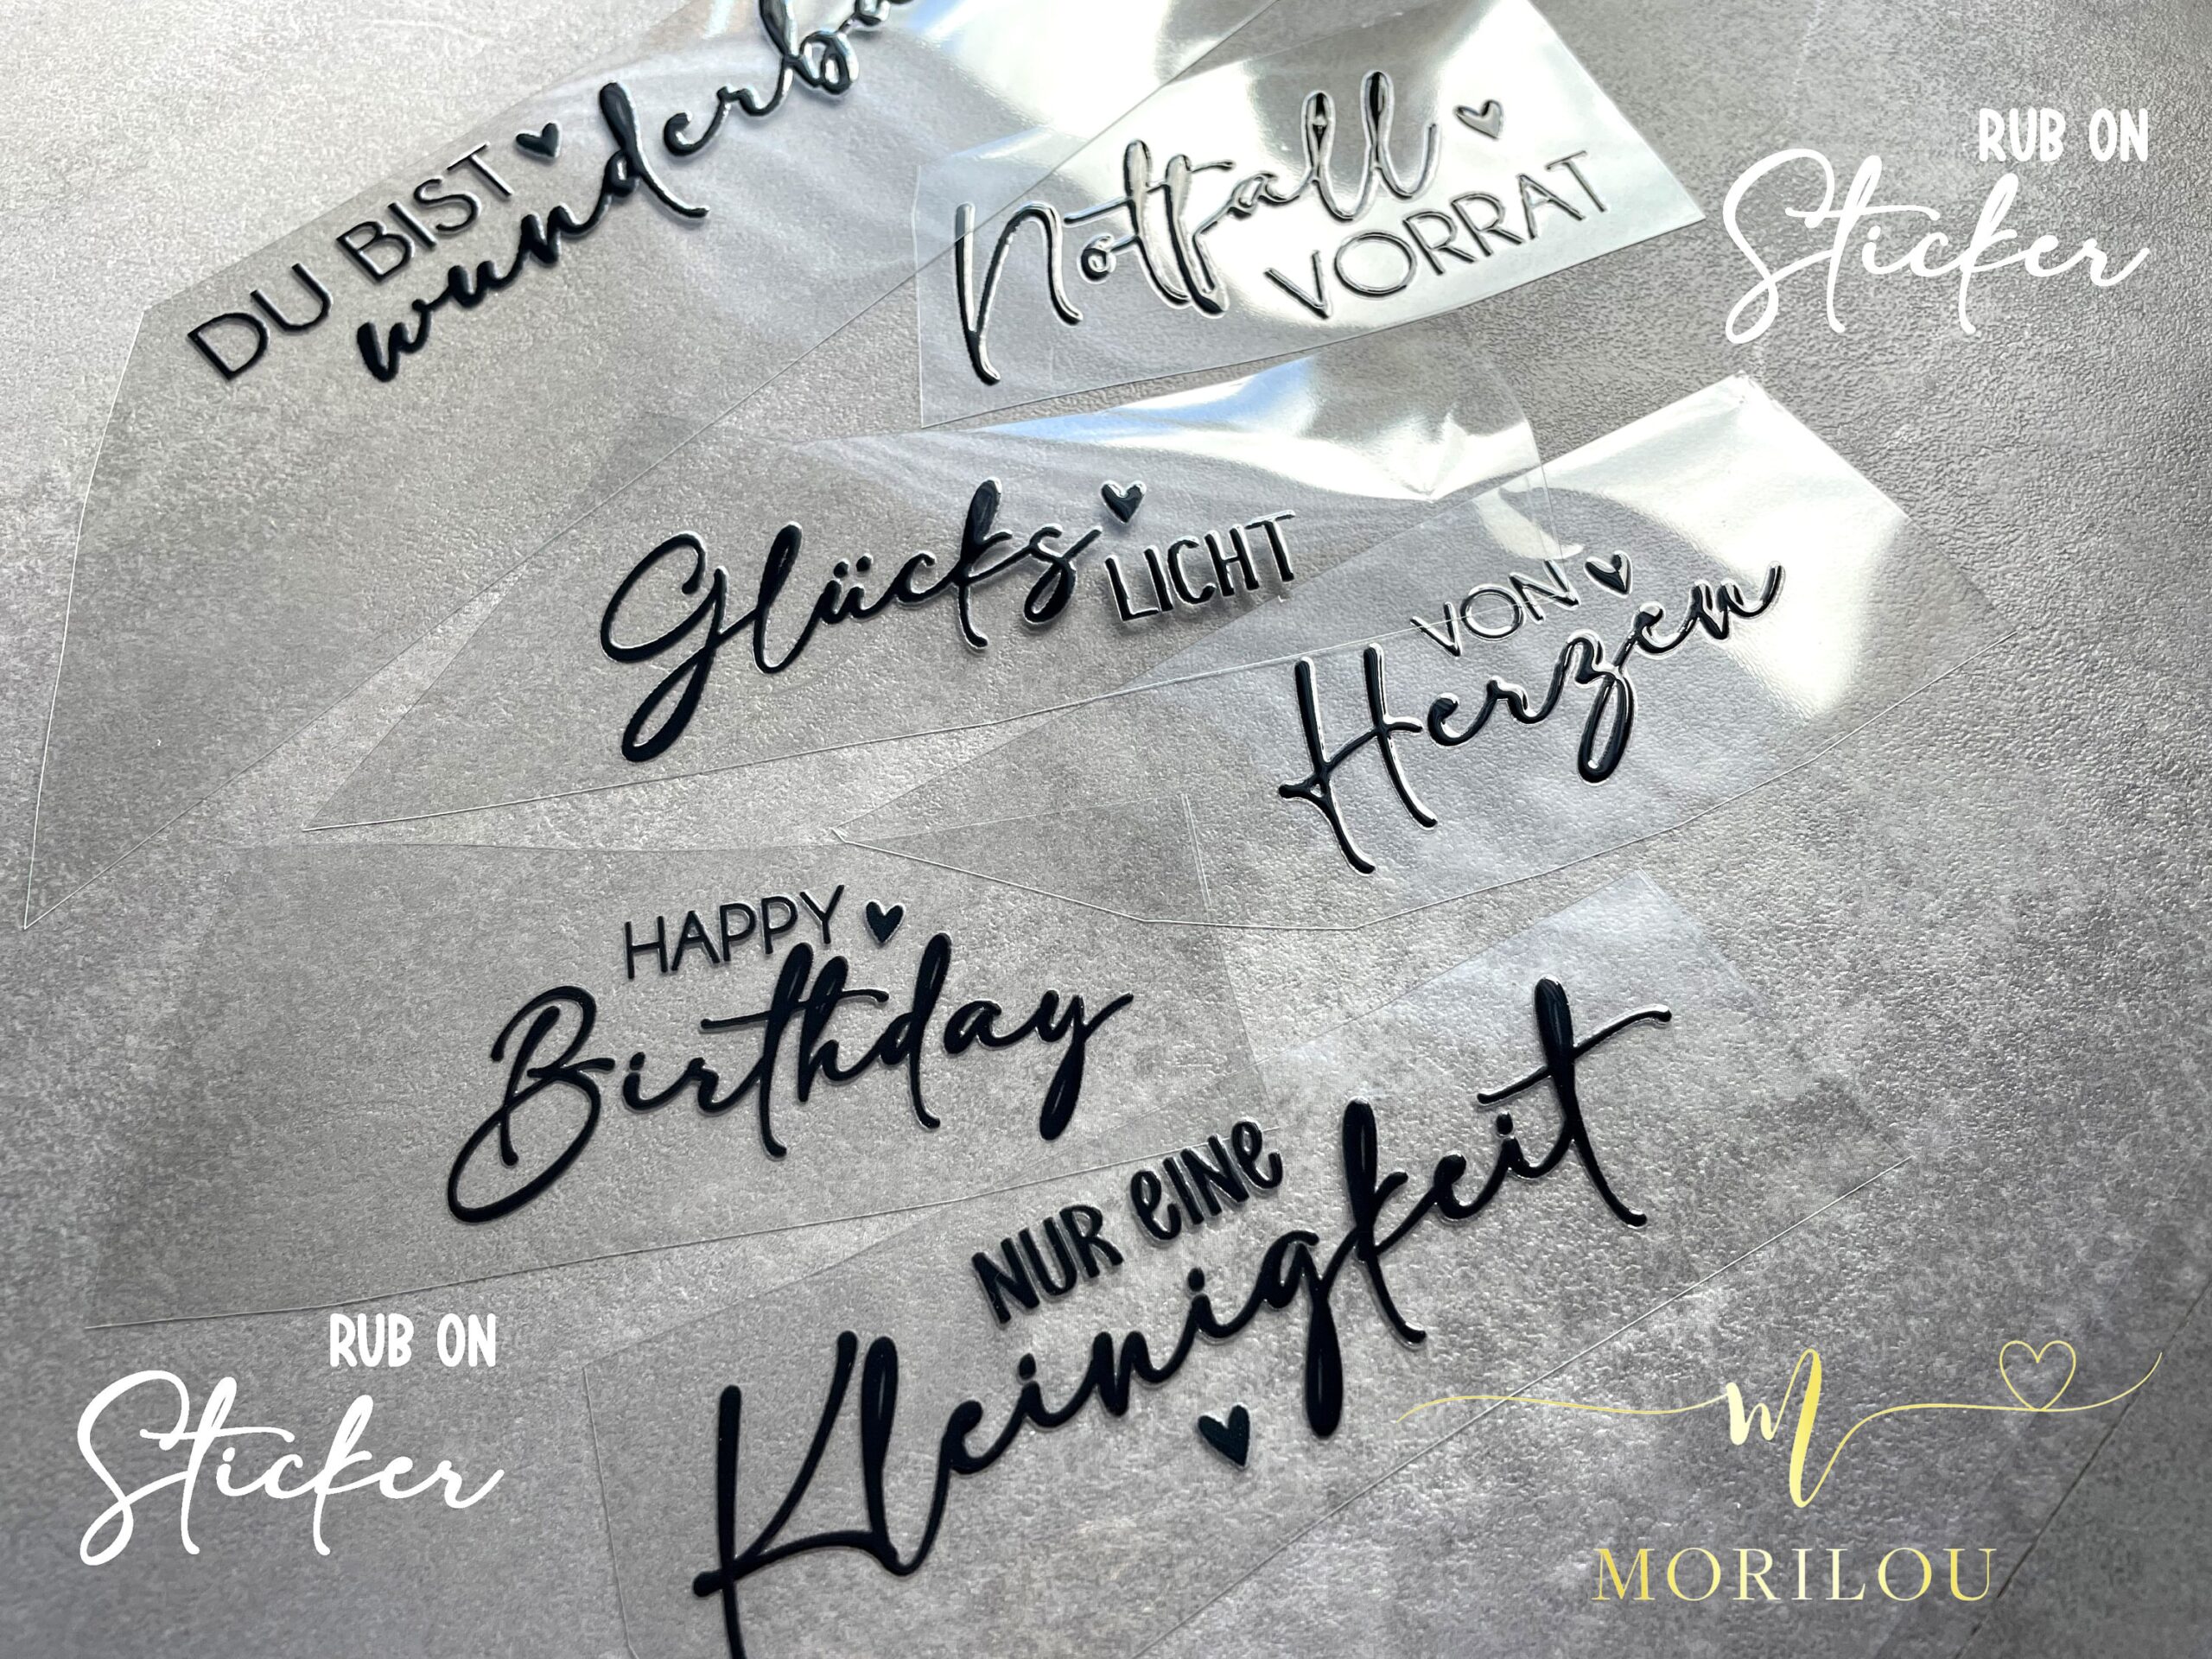 DU BIST
Notfall
VORRAT
RUB ON
Sticker
Glücks
LICHT
VON
Herzen
HAPPY
Birthday
NUR eINe
Kleinigkeit
RUB ON
Sticker
m
MORILOU